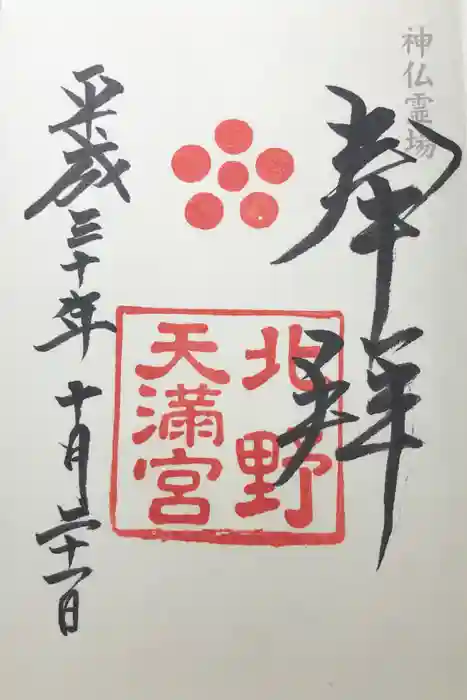 神仏霊場
奉拝
北野
天満宮
平成三十年十月二十一日